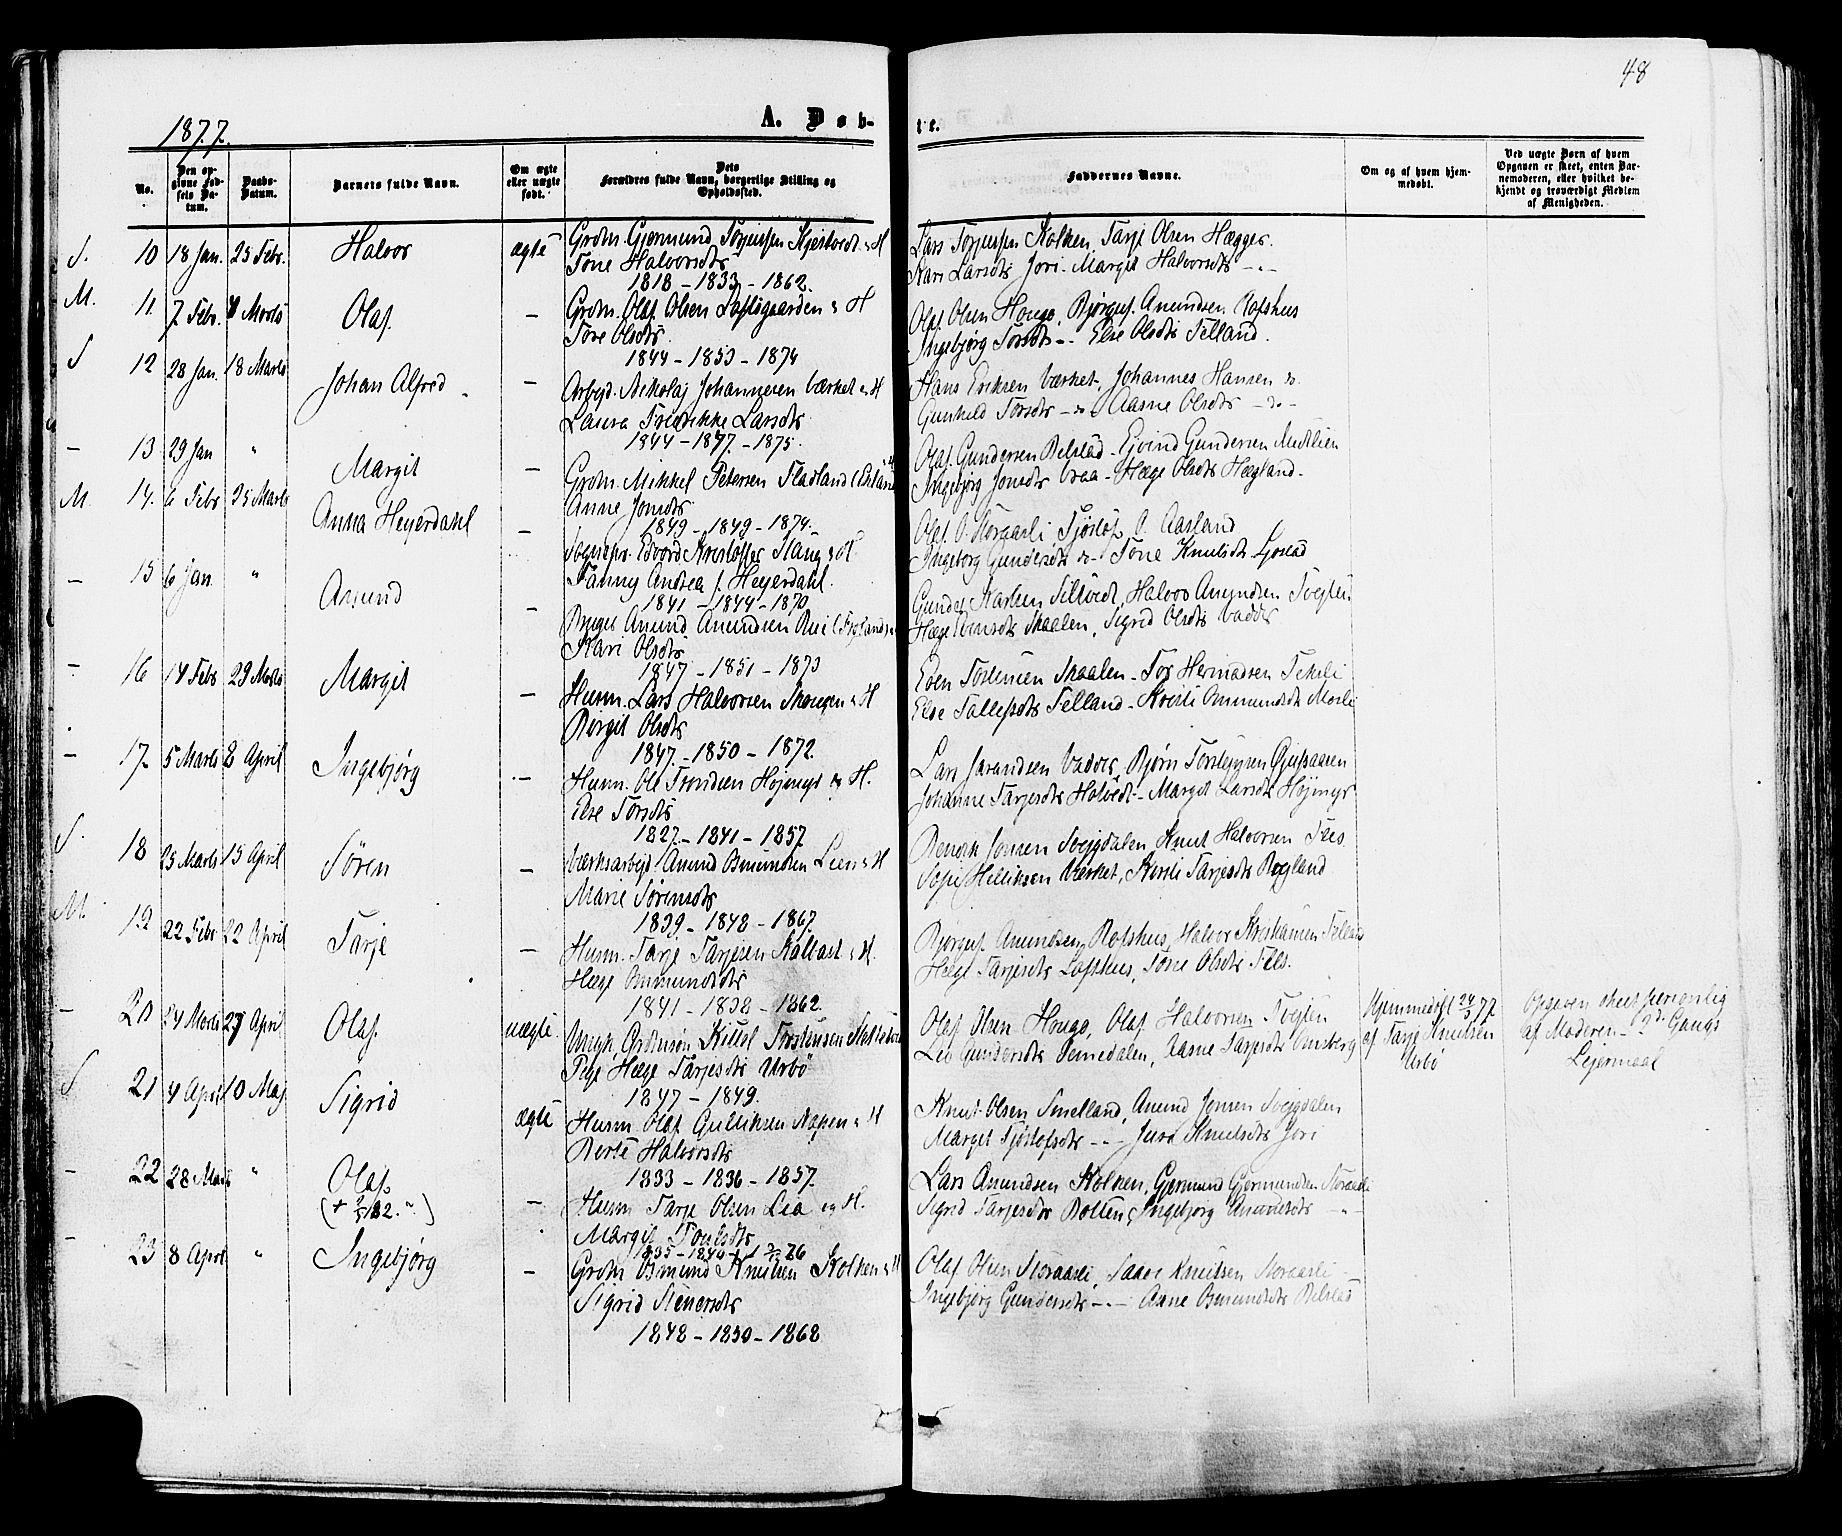 48
1877.
A. Døb-
te.
No.
Den op-
givne Fød-
sels Da-
tum.
Daabs-
Datum.
Barnets fulde Navn.
Om ægte
eller uægte
født.
Dets
Forældres fulde Navn, borgerlige Stilling og
Opholdssted.
Faddernes Navne.
Om og af hvem hjem-
medøbt.
Ved uægte Børn af hvem
Opgaven er skeet, enten Bar-
nemoderen, eller hvilket be-
kjendt og troværdigt Medlem
af Menigheden.
S. 10 18 Jan. 25 Febr. Halvor ægte Grdm. Gjermund Torjussen Kjestvedt & H
Tone Halvorsdtr
1818 - 1833 - 1862.
Lars Torjussen Kolken, Tarje Olsen Hægger.
Kari Larsdtr Jori - Margit Halvorsdtr - " -
M. 11. 7 Febr. 4 Marts Olaf. - Grdm. Olaf Olsen Loftsgaarden & H
Tone Olsdtr
1844 - 1853 - 1874
Olaf Olsen Hougo, Bjørguf. Anundsen Rofshus
Ingebjørg Torsdtr - - Else Olsdtr Felland.
S 12 28 Jan. 18 Marts Johan Alfred - Arbejd. Nikolaj Johannesen Værket & H
Laura Fredrikke Larsdtr
1844 - 1877 - 1875.
Hans Eriksen Værket, Johannes Hansen do.
Gunhild Torsdtr - do - Aasne Olsdtr - do -
- 13 29 Jan " Margit - Grdm. Mikkel Petersen Fladland
Anne Jonsdtr
1849 - 1849 - 1874.
Olaf Gundersen Belstad - Ejvind Gundersen Midtlien
Ingebjørg Jonsdtr Vraa - Hæge Olsdtr Hægland -
M. 14. 6 Febr 25 Marts Anna Heyerdahl - Sognepr. Edvard Kristoffer Haug & H.
Fanny Andrea f. Heyerdahl.
1841 - 1844 - 1870
Olaf O. Storaasli, Tjøstolf O. Aasland
Ingeborg Gundersdtr do - Tone Knutsdtr Ljosdad
- 15 6 Jan " Anund - Bruger Anund Anundsen Bui
Kari Olsdtr
1847 - 1851 - 1873
Halvor Anundsen Tvejten
Skaalen, Sigrid Olsdtr Vadder
- 16 14 Febr 29 Marts Margit - Husm. Lars Halvorsen Mougen & H
Birgit Olsdtr
1847 - 1850 - 1872.
Even Torstensen Skaalen - Tor Hermansen
Else Tallefsdtr Felland - Kristi Ommundsdtr
- 17. 5 Marts 8 April Ingebjørg - Husm. Ole Trondsen Højmyr og H.
Else Torsdtr
1827 - 1841 - 1857
Lars Jarandsen Vadder, Bjørn Torstensen
Johanne Tarjesdtr Holvedt - Margit Larsdtr Højmyr
S. 18 25 Marts 15 April Sören - Værksarbejd. Anund Omundsen Lien & H
Marie Sörensdtr
1839 - 1848 - 1867.
Bendik Jonsen Svejgdalen, Knut Halvorsen Flis
Sofie Helliksen Værket, Kristi Tarjesdtr Rogland
M. 19 22 Febr 22 April Tarje - Husm. Tarje Tarjesen Kolbast & H.
Hæge Ommundsdtr
1841 - 1838 - 1862
Bjørguf. Anundsen Rofshus, Halvor Kristiansen Felland
Hæge Tarjesdtr Lofthus, Tone Olsdtr Flis.
- 20 24 Marts 27 April Olaf. uægte Ungk. Grdmsön Kittel Torstensen
Pige Hæge Tarjesdtr Urbö
1847 - 1849.
Olaf Olsen Hougo, Olaf Halvorsen Tvejten
Liv Gundersdtr Semedalen, Aasne Tarjesdtr Omsberg
Hjemmedöbt 24/3 77
af Tarje Knutsen
Urbö
Opgaven skeet personlig
af Moderen - 2d. Gangs
Lejermaal
S 21 4 April 10 Maj Sigrid ægte Husm. Olaf Gulliksen Næpen & H
Berte Halvorsdtr
1833 - 1836 - 1857.
Knut Olsen Smelland, Anund Jonsen Svejgdalen
Margit Tjöstolfsdtr - - - Jura Knutsdtr Jori
- 22 28 Marts " Olaf - Husm Tarje Olsen Lia og H.
Margit
1835 - 1840 -
Lars Anundsen Kolken, Gjermund Gjermundsen Storaasli
Sigrid Tarjesdtr Bollen, Ingebjørg Anundsdtr - " -
- 23 8 April " Ingebjørg - Grdm Omund Knutsen Kolken & H
Sigrid Stenersdtr
1848 - 1850 - 1868
Olaf Olsen Storaasli, Knutsen Storaasli
Ingebjørg Gundersdtr - . - Aasne Omundsdtr Belstad